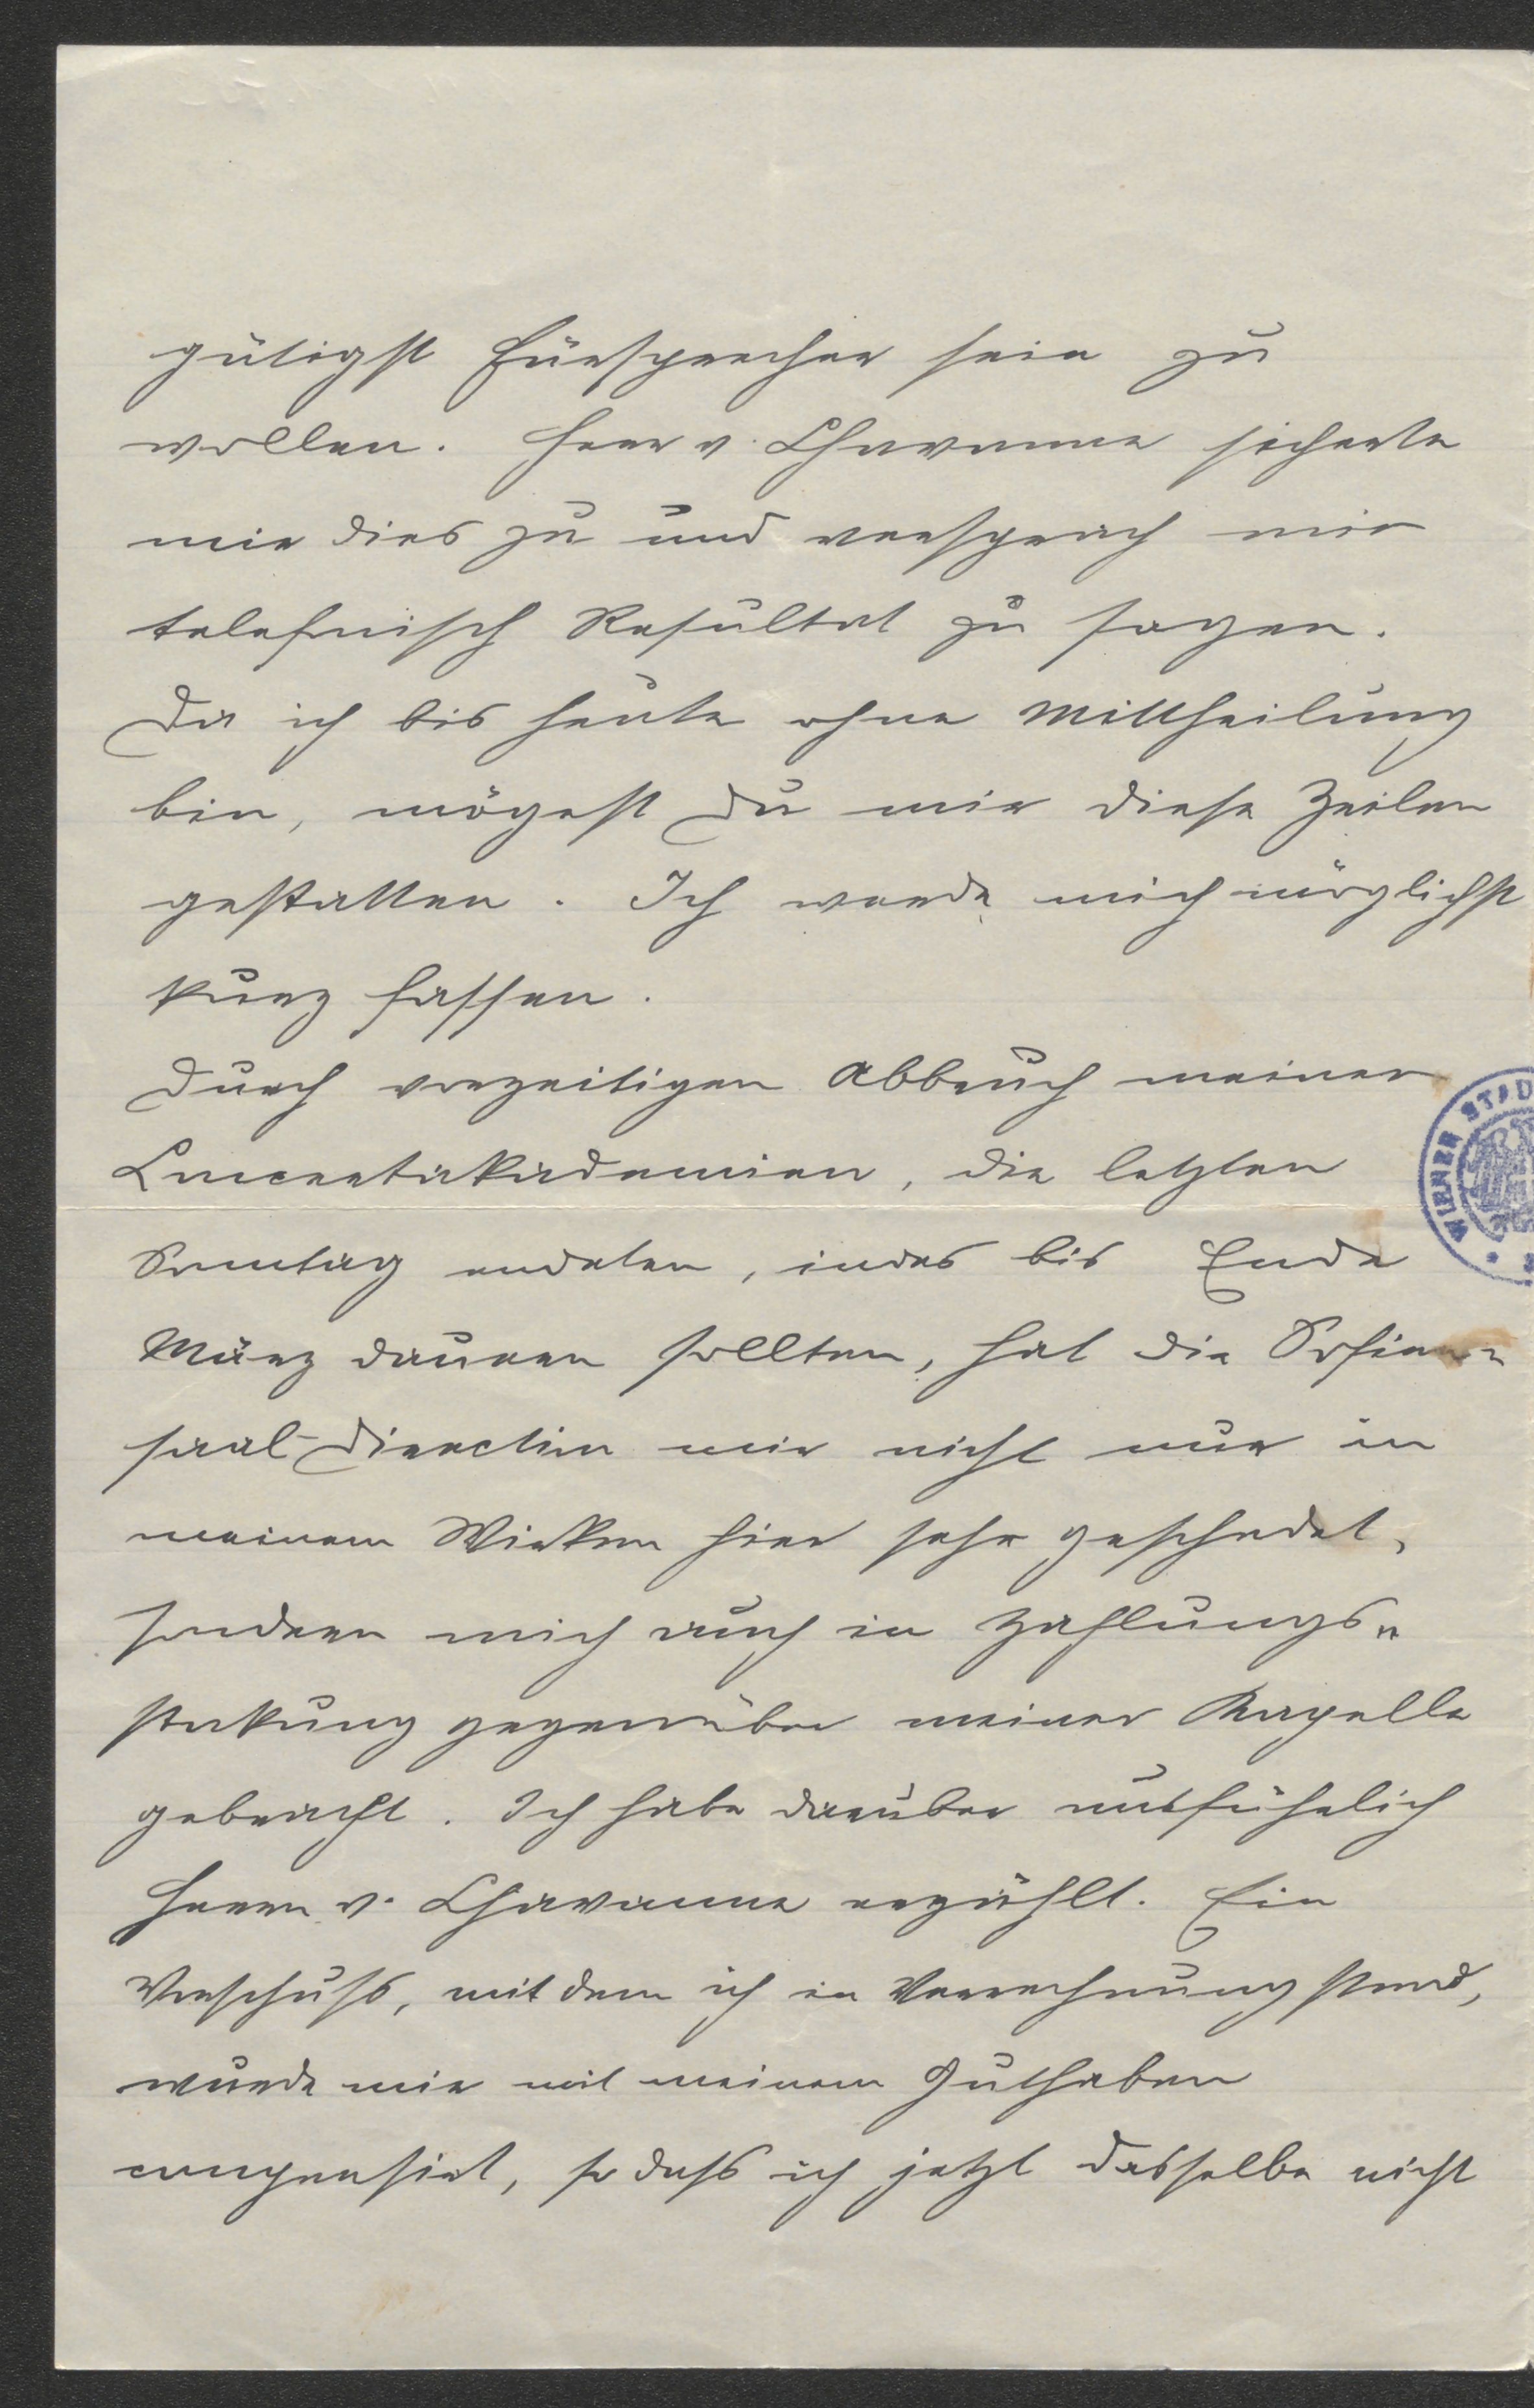 gütigst Fürsprecher sein zu
wollen. Herr v. Chavanne sicherte
mir dies zu und versprach mir
telefonisch Resultat zu sagen.
Da ich bis heute ohne Mittheilung
bin, mögest Du mir diese Zeilen
gestatten. Ich werde mich möglichst
kurz fassen.
Durch vorzeitigen Abbruch meiner
Concertakademien, die letzten
Sonntag endeten, indes bis Ende
März dauern sollten, hat die Sofien-
saal-Direction mir nicht nur in
meinem Wirken hier sehr geschadet,
sondern mich auch in Zahlungs-
stokung gegenüber meiner Kapelle
gebracht. Ich habe darüber ausführlich
Herrn v. Chavanne erzählt. Ein
Vorschuß, mit dem ich in Verrechnung stand,
wurde mir mit meinem Guthaben
compensirt, so daß ich jetzt dasselbe nicht
WIENER STAD